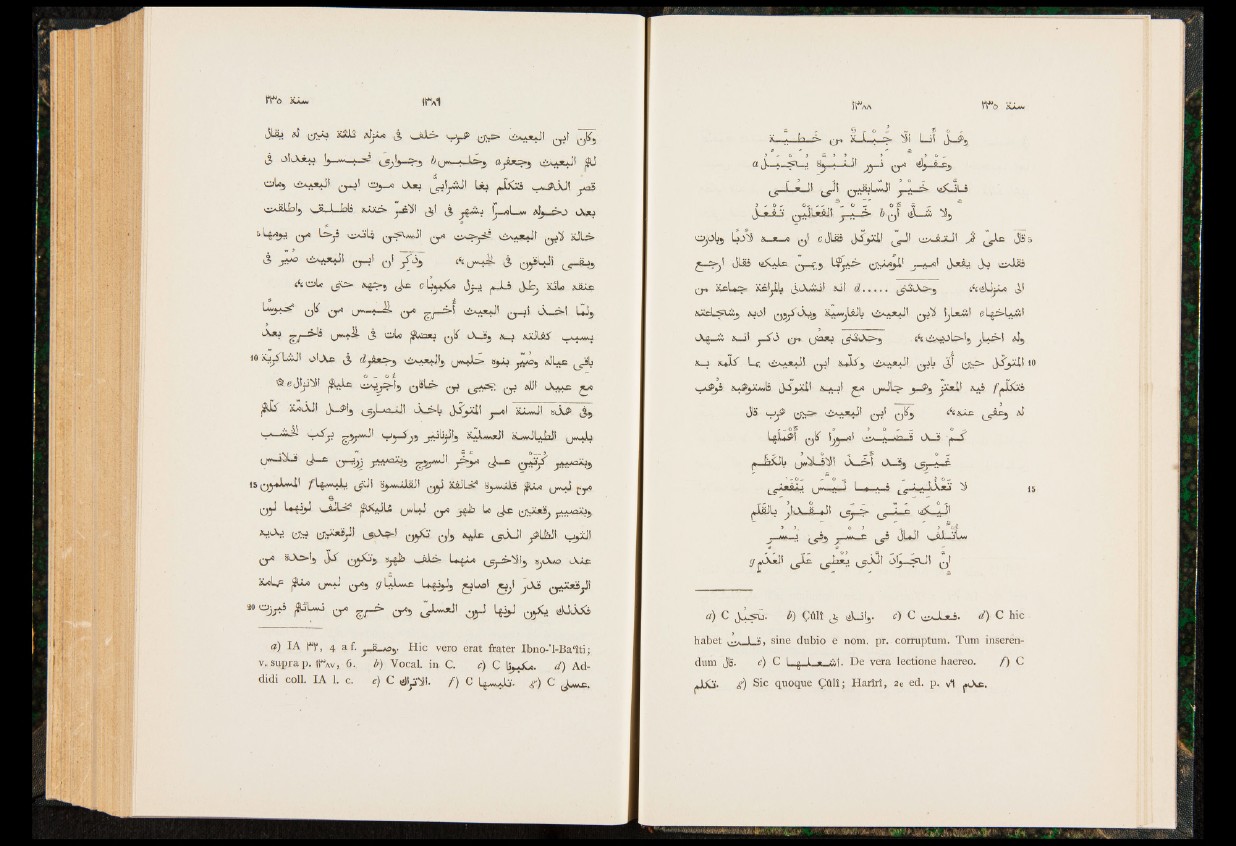 ١٣٨٨ سنة ٢٣٥
وهَلْ أنا إلّا جُبْلَة من خطيّة
وعَفْوُك من نُور النُبُوّة يُجْبَل a
فإنَّك خَيْر السابِقِين إلى العُلَى
ولا شَكّ أنْ b خَيْر الفَعَالَيْن تَفْعَل
5 قال علىّ ثم التفت الىّ المتوكّل فقال c ان معه لأدبًا وبادرت
فقلت بل يفعل امير المؤمنين خيرهما ويمنّ عليك فقال ارجع
الى منزلك، وحدّثنى ..... d انه انشدنى بالمراغة جماعة من
اشياخها e اشعارا لابن البعيث بالفارسيّة ويذكرون ادبه وشجاعته
وله اخبار واحاديث، وحدّثنى بعض من ذكر انه شهد
10 المتوكّل حين أتى بابن البعيث وكلّمه ابن البعيث بما كلّمه به
فتكلّم f فيه المعتزّ وهو جالس مع ابيه المتوكّل فاستوهبه فوُهب
له وعُفى عنه، وكان ابن البعيث حين هرب قال
كَمْ قد قَضَيْتُ امورًا كان أَهْمَلَها
غَيْرِى وقد أخَذَ الإفْلاسُ بالكَظَم
15 لا تَعْذُلِينى فيما لَيْسَ يَنْفَعُنى
الَيْك عَنّى جَرَى المِقْدارُ بالقَلَم
سأُتْلفُ المالَ فى عُسْر وفى يُسْر
إنّ الجَوَادَ الّذى يُعْطِى عَلَى العَدَم g
a) C تتجبل. b) Çûlî وانك فى. c) C فعلت. d) C hic
habet قلت, sine dubio e nom. pr. corruptum. Tum inseren-
dum قال. e) C. De vera lectione haereo. f) C
تكلم. g) Sic quoque Çûlî; Harîrî, 2e ed. p. ٧٦ عدم.
١٣٨٩ سنة ٢٣٥
وكان ابن البعيث حين هرب خلف فى منزله ثلثة بنين له يقال
لهم البعيث وجعفر a وحلبس b وجوارى فحبسوا ببغداد فى
قصر الذهب فتكلّم بغا الشرابىّ بعد موت ابن البعيث ومات
بعد دخوله سامرّا بشهر فى ابى الأغرّ ختنه فاطلقه واطلقت
خالة لابن البعيث فخرجت من السجن فماتت فرحًا من يومها
وبقى الباقون فى الحبس، وذُكر ان ابن البعيث صُيّر فى
عنقه مائة رطل فلم يزل مكبوبًا c على وجهه حتى مات،
ولما أخذ ابن البعيث أُخرج من الحبس من كان محبوسًا
بسبب كفالته به وقد كان بعضهم مات فى الحبس فأُخرج بعدُ
10 باقى عياله وصُيّر بنوه حلبس والبعيث وجعفر d فى عداد الشاكريّة
مع عبيد الله بن يحيى بن خاقان وأُجْرِيَتْ عليهم الانزال e
وفى هذه السنة امر المتوكّل باخذ النصارى واهل الذمّة كلّهم
بلبس الطيالسة العسليّة والزنانير وركوب السروج بركب الخشب
وبتصيير كُرَتَيْن على مؤخّر السروج وبتصيير زرّين على قلانس
15 من لبس منهم قلنسوة مخالفة لون القلنسوة التى يلبسها f المسلمون
وبتصيير رقعتين على ما ظهر من لباس مماليكهم مخالف لونهما لون
الثوب الظاهر الذى عليه وان تكون احدى الرقعتين بين يديه
عند صدره والاخرى منهما خلف ظهره وتكون كلّ واحدة من
الرقعتين قدر اربع اصابع ولونهما عسليًّا g ومن لبس منهم عمامة
20 فكذلك يكون لونها لون العسلىّ ومن خرج من نسائهم فبرزت
a) IA ٣٢, 4 a f. وصقر. Hic vero erat frater Ibno-'l-Ba'îti;
v. supra p. ١٣٨٧, 6. b) Vocal. in C. c) C مكبوتا. d) Ad-
didi coll. IA l. c. e) C الاتراك. f) C تلبسها. g) C عسلى.